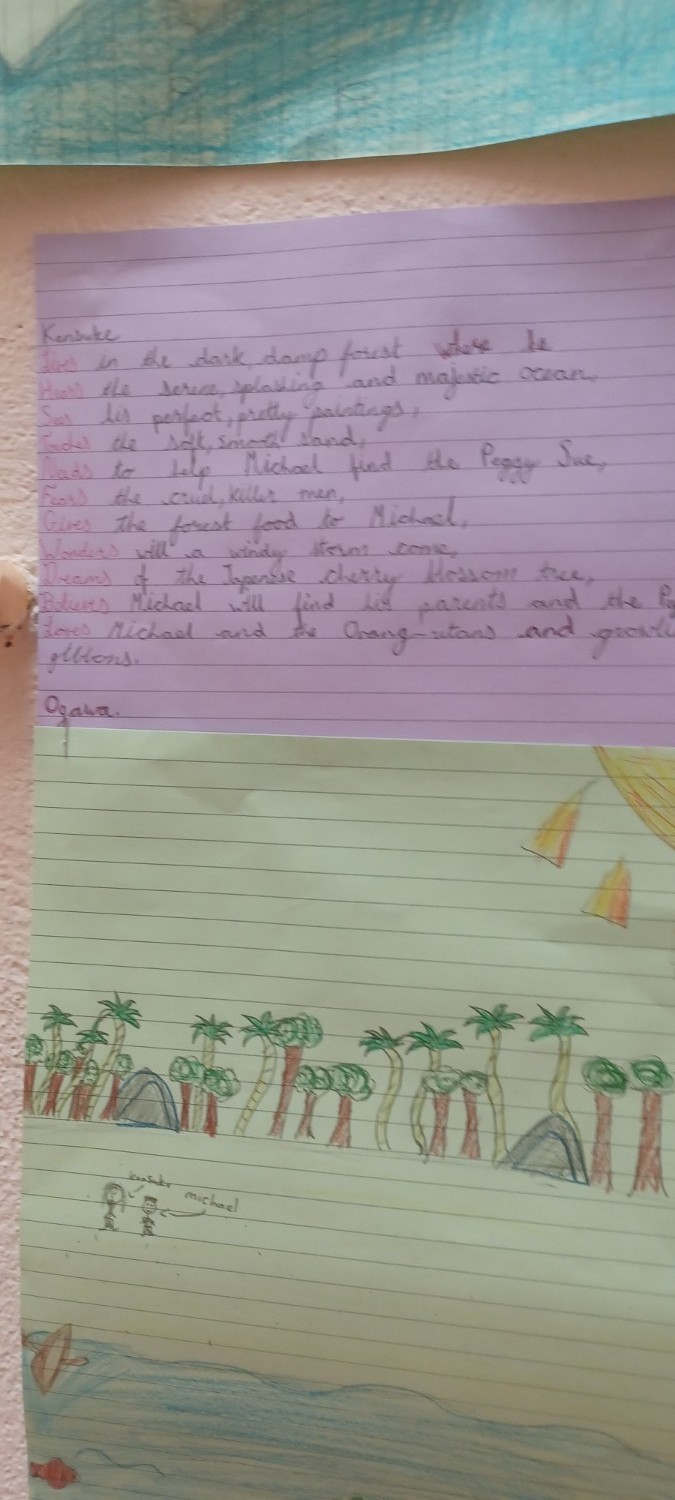 Kensuke
Lives in the dark, damp forest where he
Hears the serene, splashing and majestic ocean,
Sees his perfect, pretty paintings,
Touches the soft, smooth sand,
Needs to help Michael find the Peggy Sue,
Fears the cruel, killer men,
Gives the forest food to Michael,
Wonders will a windy storm come,
Dreams of the Japenese cherry blossom tree,
Believes Michael will find his parents and the
Loves Michael and the Orang-utans and
gibbons.
Ogawa.
kensuke
michael